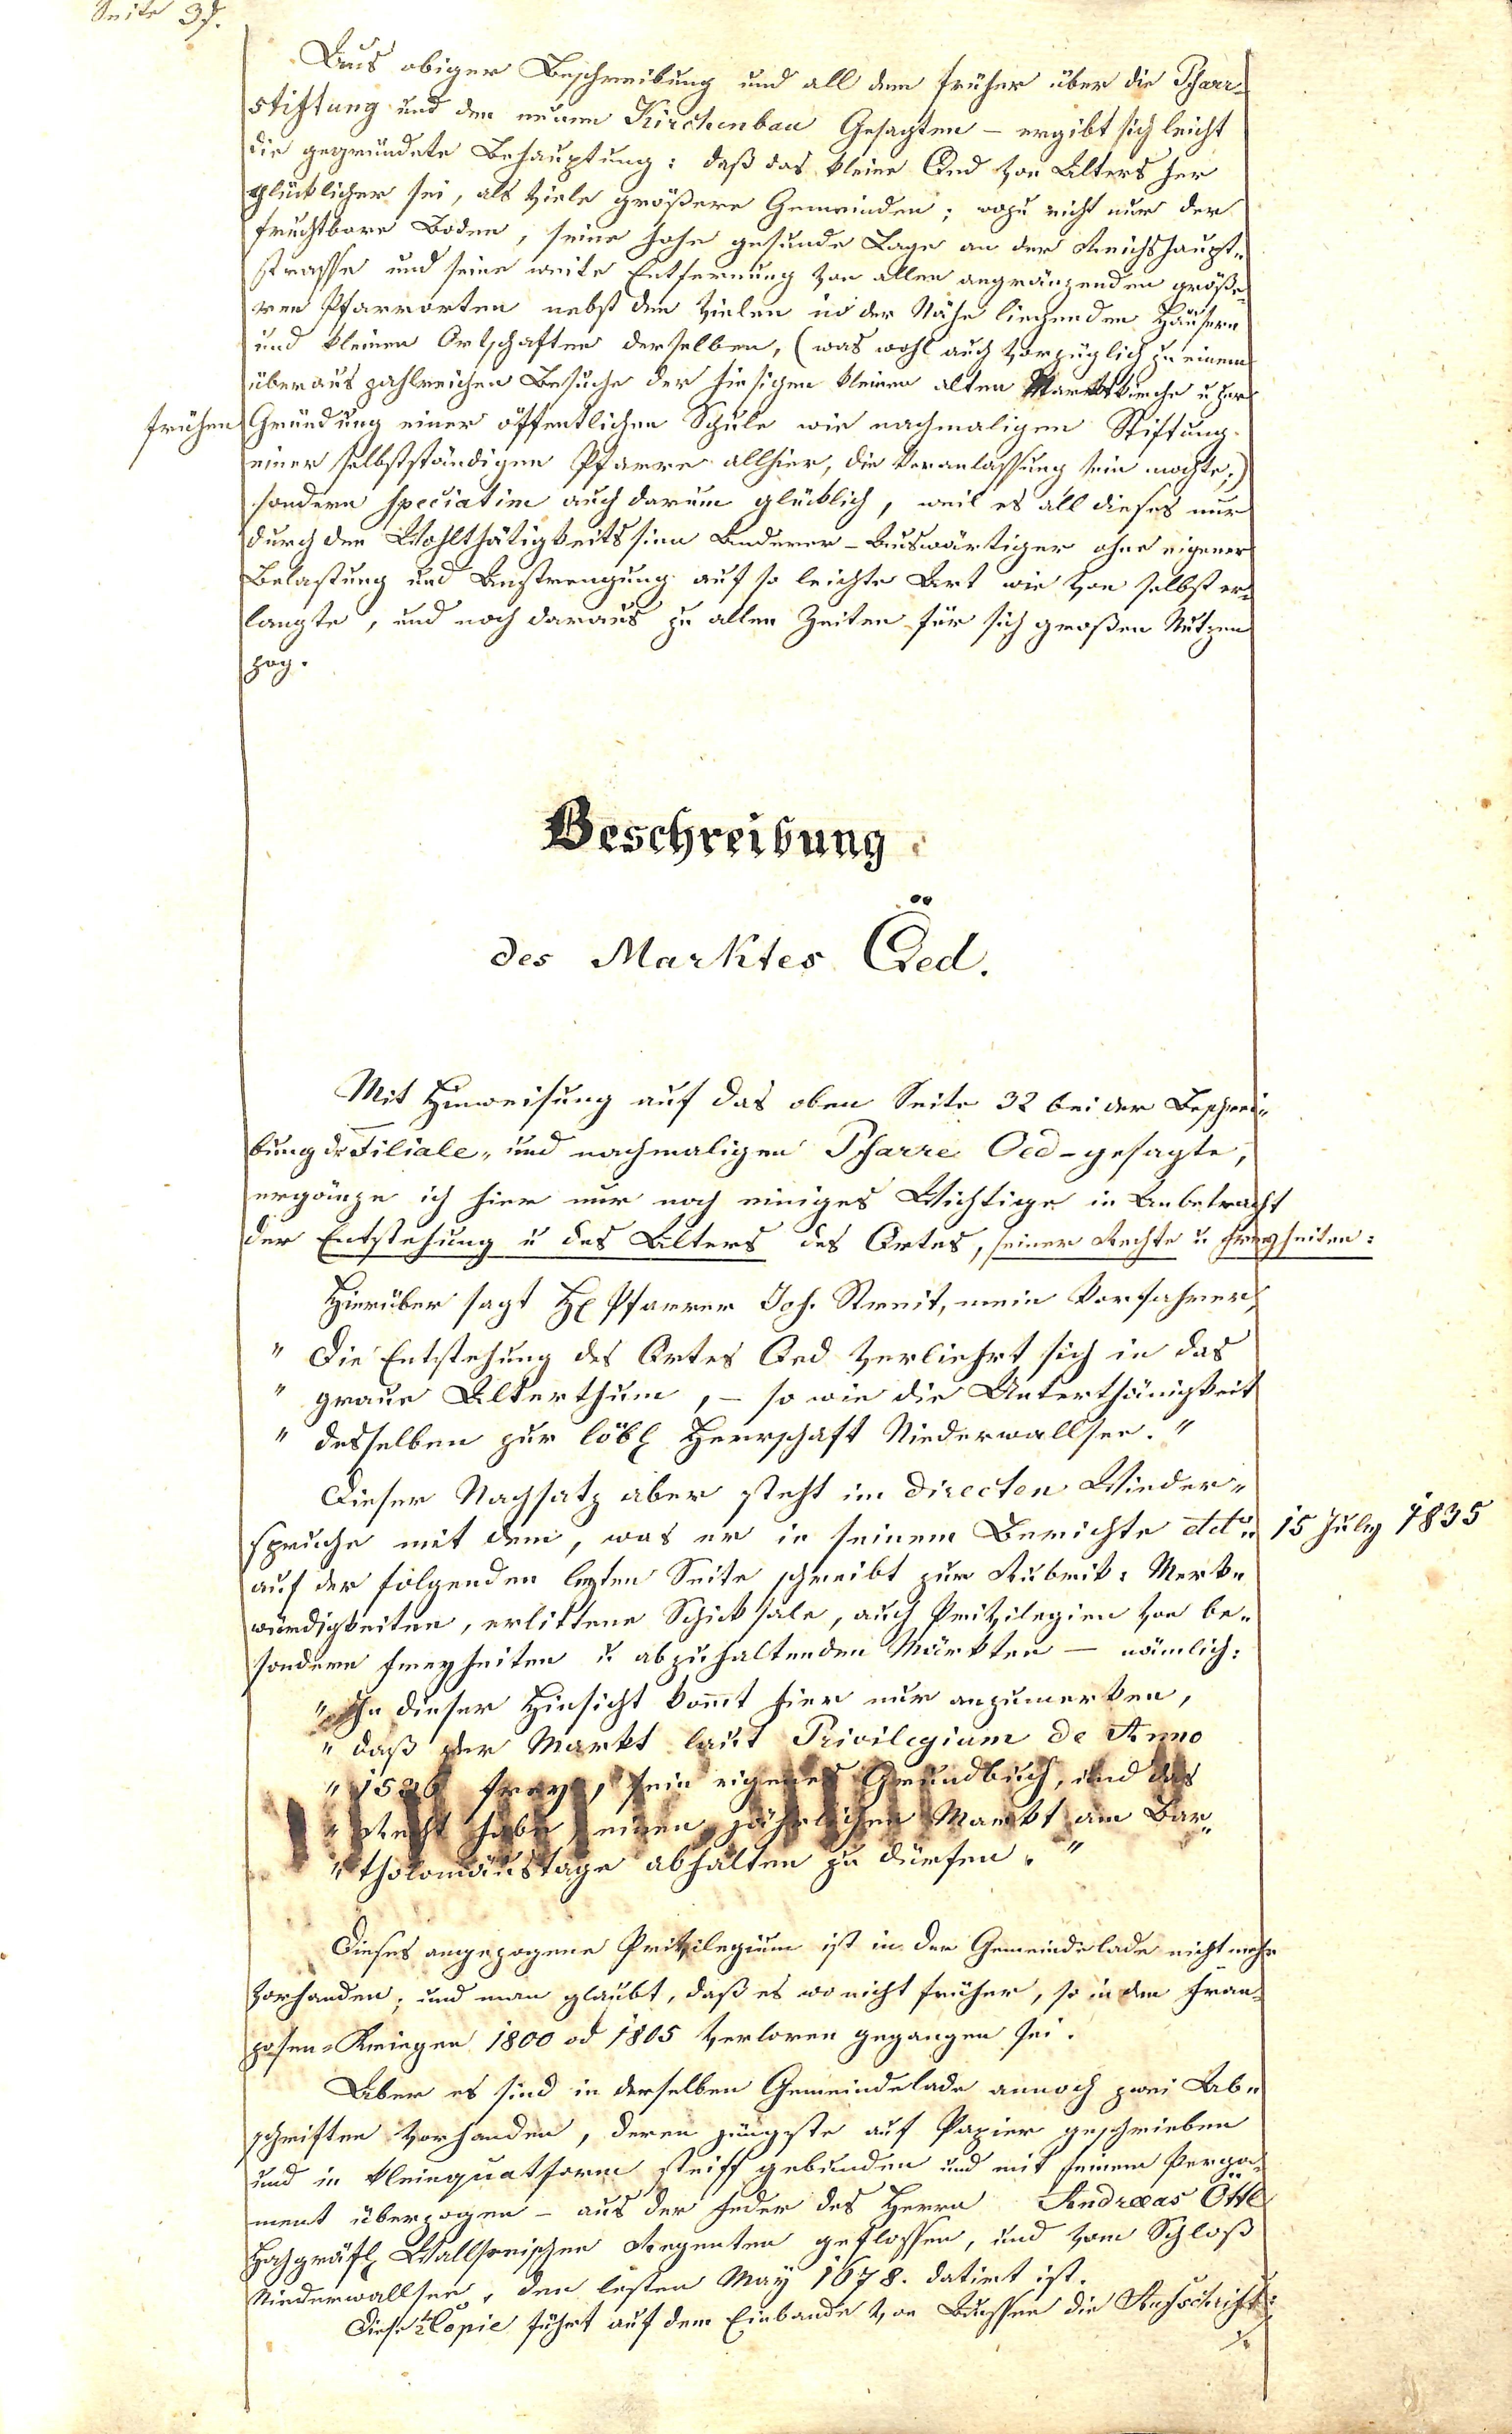 Seite 37.
Aus obiger Beschreibung und all dem früher über die Pfarr-
stiftung und den neuen Kirchenbau Gesagten – ergibt sich leicht
die gegründete Behauptung: daß das kleine Oed von Alters her
glücklicher sei, als viele größere Gemeinden; wozu nicht nur der
fruchtbare Boden, seine hohe gesunde Lage an der Reichshaupt-
strasse und seine weite Entfernung von allen angränzenden größe-
ren Pfarrorten nebst den vielen in der Nähe liegenden Häusern
und kleinen Ortschaften derselben, (was wohl auch vorzüglich zu einem
überaus zahlreichen Besuche der hiesigen kleinen alten Marktkirche u zur
frühen Gründung einer öffentlichen Schule wie nachmaligen Stiftung
einer selbstständigen Pfarre allhier, die Veranlassung sein mochte;)
sondern speciatim auch darum glücklich, weil es all dieses nur
durch den Wohlthätigkeitssinn Anderer - Auswärtiger ohne eigener
Belastung und Anstrengung auf so leichte Art wie von selbst er-
langte, und noch daraus zu allen Zeiten für sich großen Nutzen
zog.
Beschreibung
des Marktes Öed.
Mit Hinweisung auf das oben Seite 32 bei der Beschrei-
bung dr Filiale, und nachmaligen Pfarre Oed - gesagte,
ergänze ich hier nur noch einiges Wichtige in Anbetracht
der Entstehung u des Alters des Ortes, seiner Rechte u Freyheiten:
Hierüber sagt H Pfarrer Joh. Streit, mein Vorfahrer,
" Die Entstehung des Ortes Oed verliehrt sich in das
" graue Alterthum, – so wie die Unterthänigkeit
" desselben zur löbl Herrschaft Niederwallsee. "
Dieser Nachsatz aber steht im directen Wieder-
spruche mit dem, was er in seinem Berichte dtto 15 July 1835
auf der folgenden lezten Seite schreibt zur Rubrik: Merk-
würdigkeiten, erlittene Schicksale, auch Privilegien von be-
sondern Freyheiten u abzuhaltenden Märkten – nämlich:
" In dieser Hinsicht kommt hier nur anzumerken,
" daß der Markt laut Privilegium de Anno
" 1526 frey, sein eigenes Grundbuch, und das
" Recht habe einen jährlichen Markt am Bar-
" tholomäustage abhalten zu dürfen. "
Dieses angezogene Privilegium ist in der Gemeindelade nicht mehr
vorhanden; und man glaubt, daß es wo nicht früher, so in den Fran-
zosen-Kriegen 1800 od 1805 verloren gegangen sei.
Aber es sind in derselben Gemeindelade annoch zwei Ab-
schriften vorhanden, deren jüngste auf Papier geschrieben
und in kleinquatform steiff gebunden und mit feinem Perga-
ment überzogen – aus der Feder des Herrn Andreas Öttl
Hochgräfl Wallseeischen Regenten geflossen, und vom Schloß
Niederwallsee, den lesten May 1678. datiert ist.
Diese Copie führt auf dem Einbande von Aussen die Aufschrift: